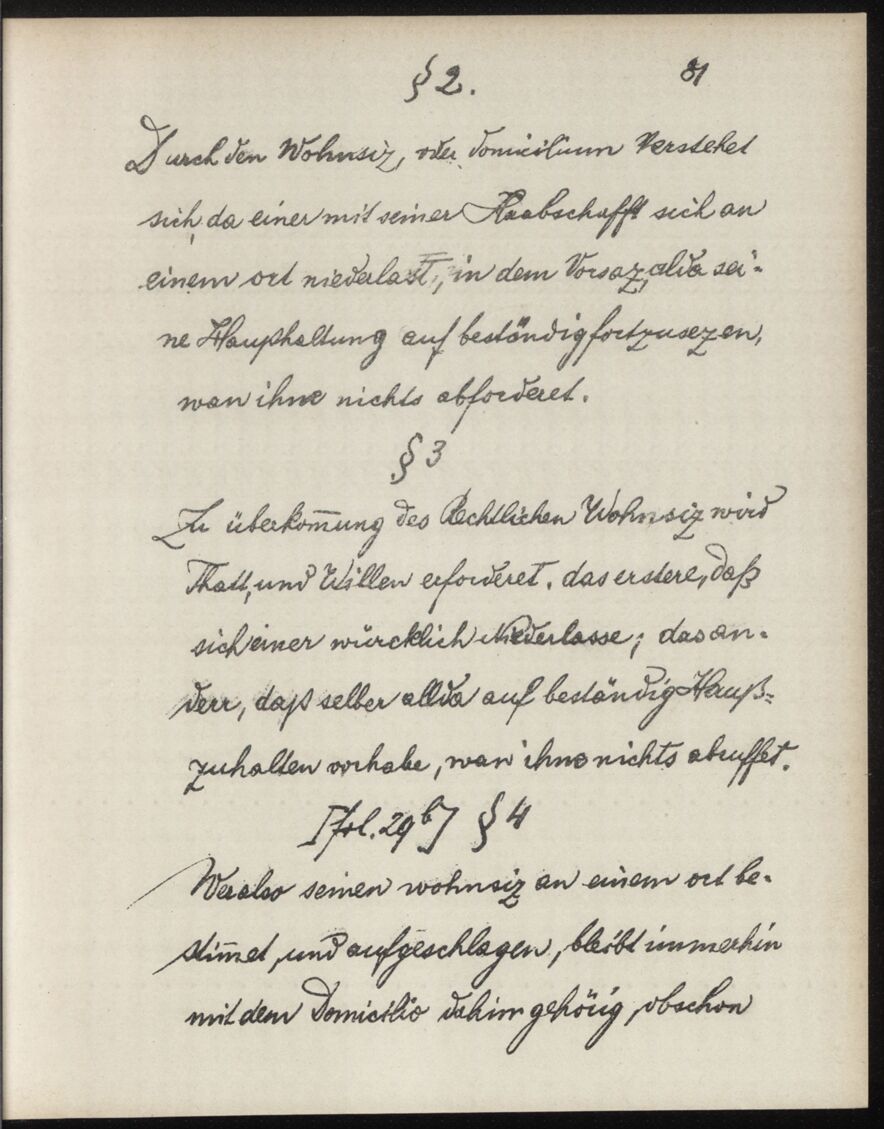 § 2. 81
Durch den Wohnsiz, oder domicilium Verstehet
sich, da einer mit seiner Haabschafft sich an
einem ort niederlast, in dem Vorsaz, alda sei-
ne Haußhaltung auf beständig fortzusezen,
wan ihne nichts abforderet.
§ 3
Zu überkom̄ung des Rechtlichen Wohnsiz wird
Thatt, und Willen erforderet. das erstere, daß
sich einer würcklich Niederlasse; das an-
derr, daß selber allda auf beständig Hauß-
zuhalten vorhabe, wan ihne nichts abruffet.
[fol. 29b] § 4
Wer also seinen wohnsiz an einem ort be-
stim̄et, und aufgeschlagen, bleibt immerhin
mit dem Domicilio dahin gehörig, obschon